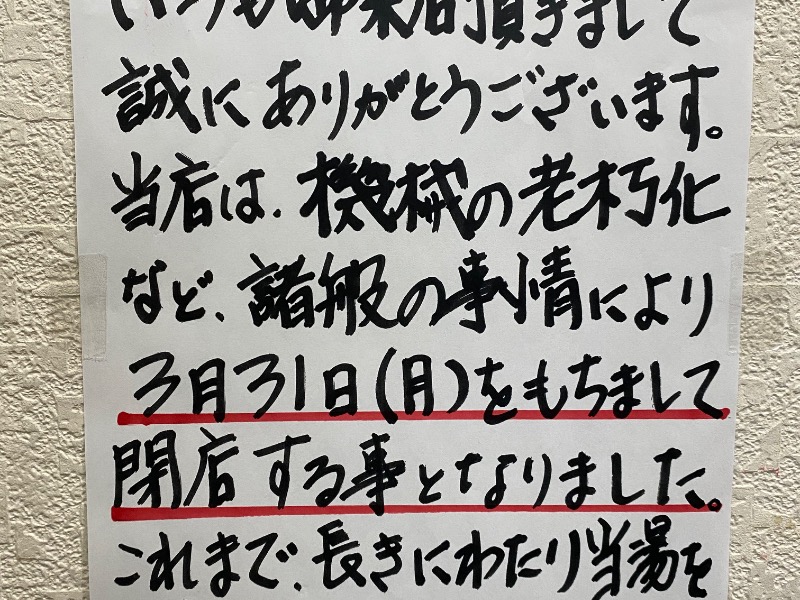 いつも御来店頂きまして
誠にありがとうございます。
当店は、機械の老朽化
など、諸般の事情により
3月31日(月)をもちまして
閉店する事となりました。
これまで、長きにわたり当湯を